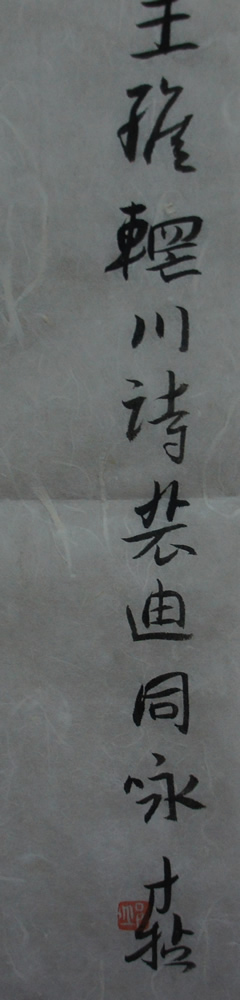 王維輞川詩裴迪同咏